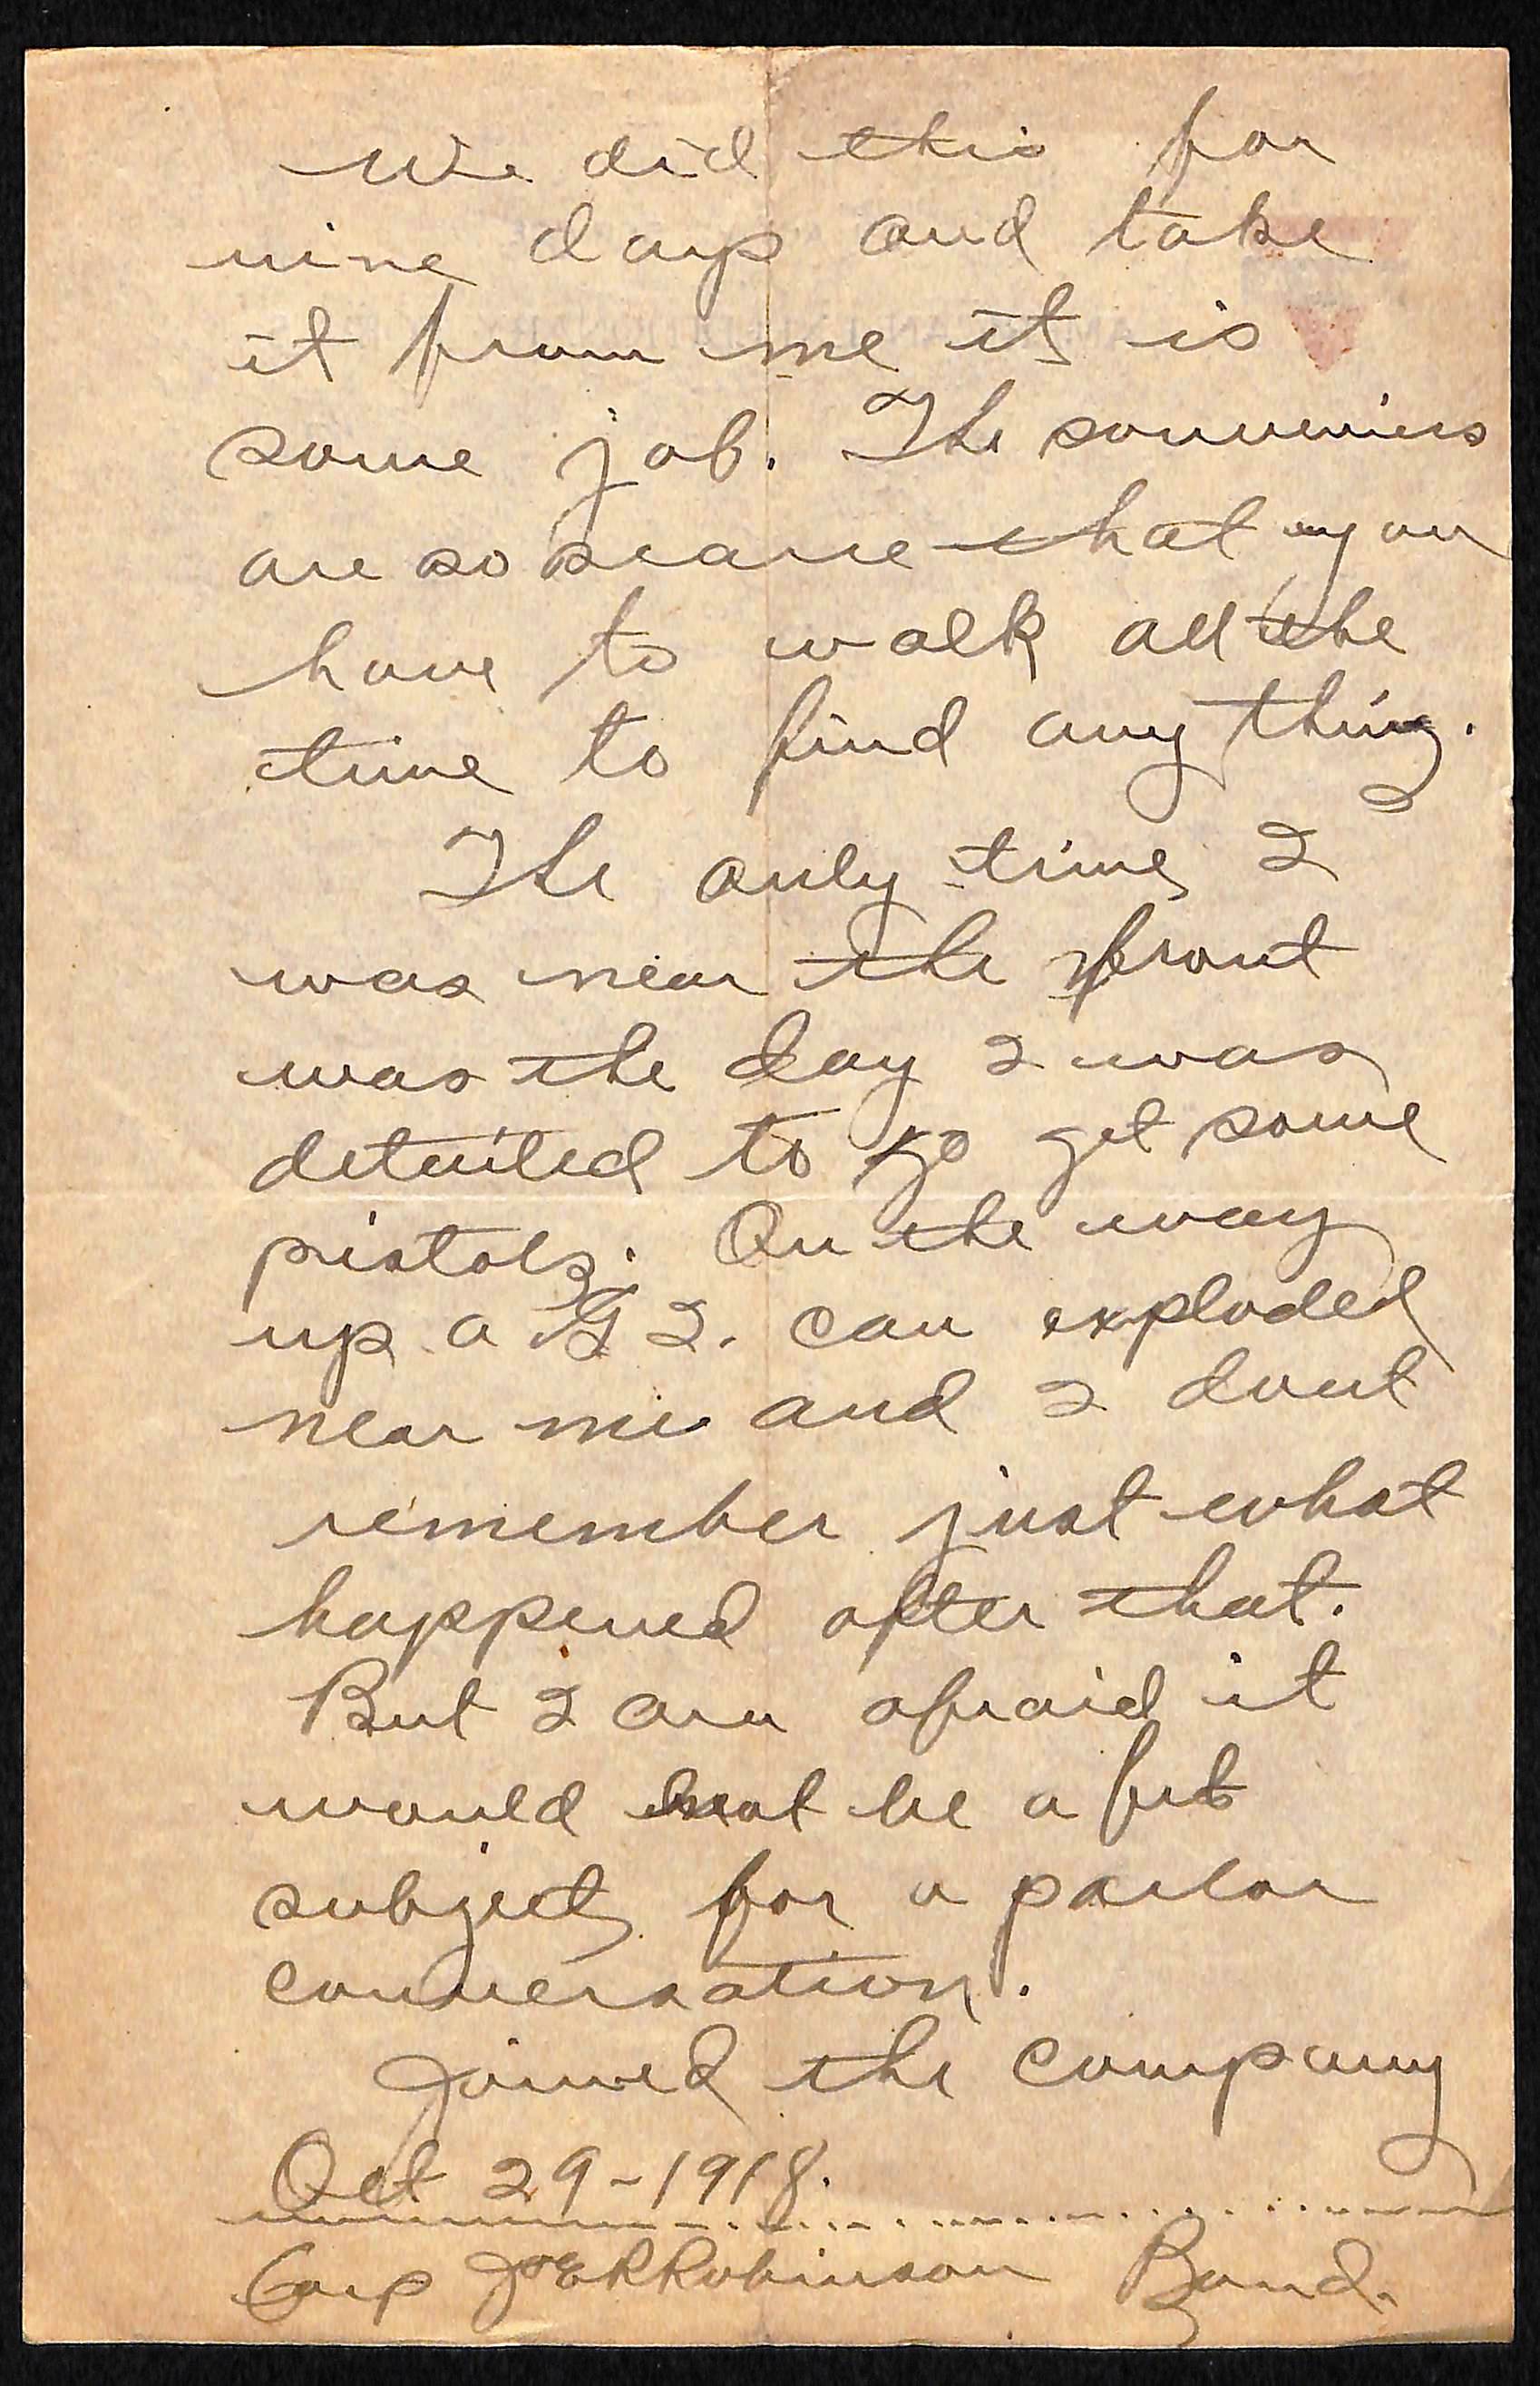 We did this for
nine days and take
it from me it is
some job. The souveniers
are so scarce that you
have to walk all the
time to find any thing.
The only time I
was near the front
was the day I was
detailed to go get some
pistols. On the way
up a G I. can exploded
near me and I dont
remember just what
happened after that.
But I am afraid it
would not be a fit
subject for a parlor
conversation.
Joined the company
Oct 29-1918.
Corp Robinson Band.